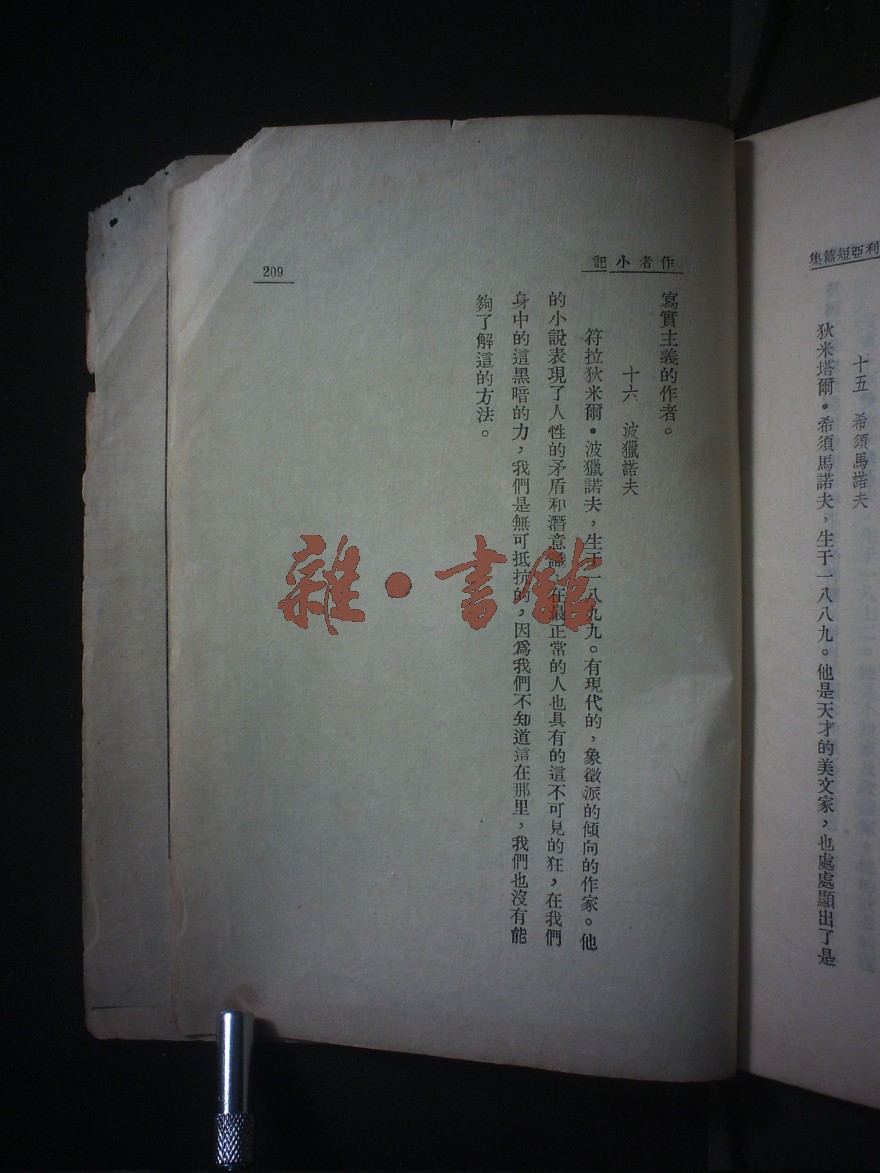 利亞短篇集
十五　希須馬諾夫
狄米塔爾•希須馬諾夫，生于一八八九。他是天才的美文家，也處處顯出了是
作者小記
寫實主義的作者。
十六　波獵諾夫
符拉狄米爾•波獵諾夫，生于一八九九。有現代的，象徵派的傾向的作家。他
的小說表現了人性的矛盾和潛意識，在最正常的人也具有的這不可見的狂，在我們
身中的這黑暗的力，我們是無可抵抗的，因爲我們不知道這在那里，我們也沒有能
夠了解這的方法。
209
雜•書館